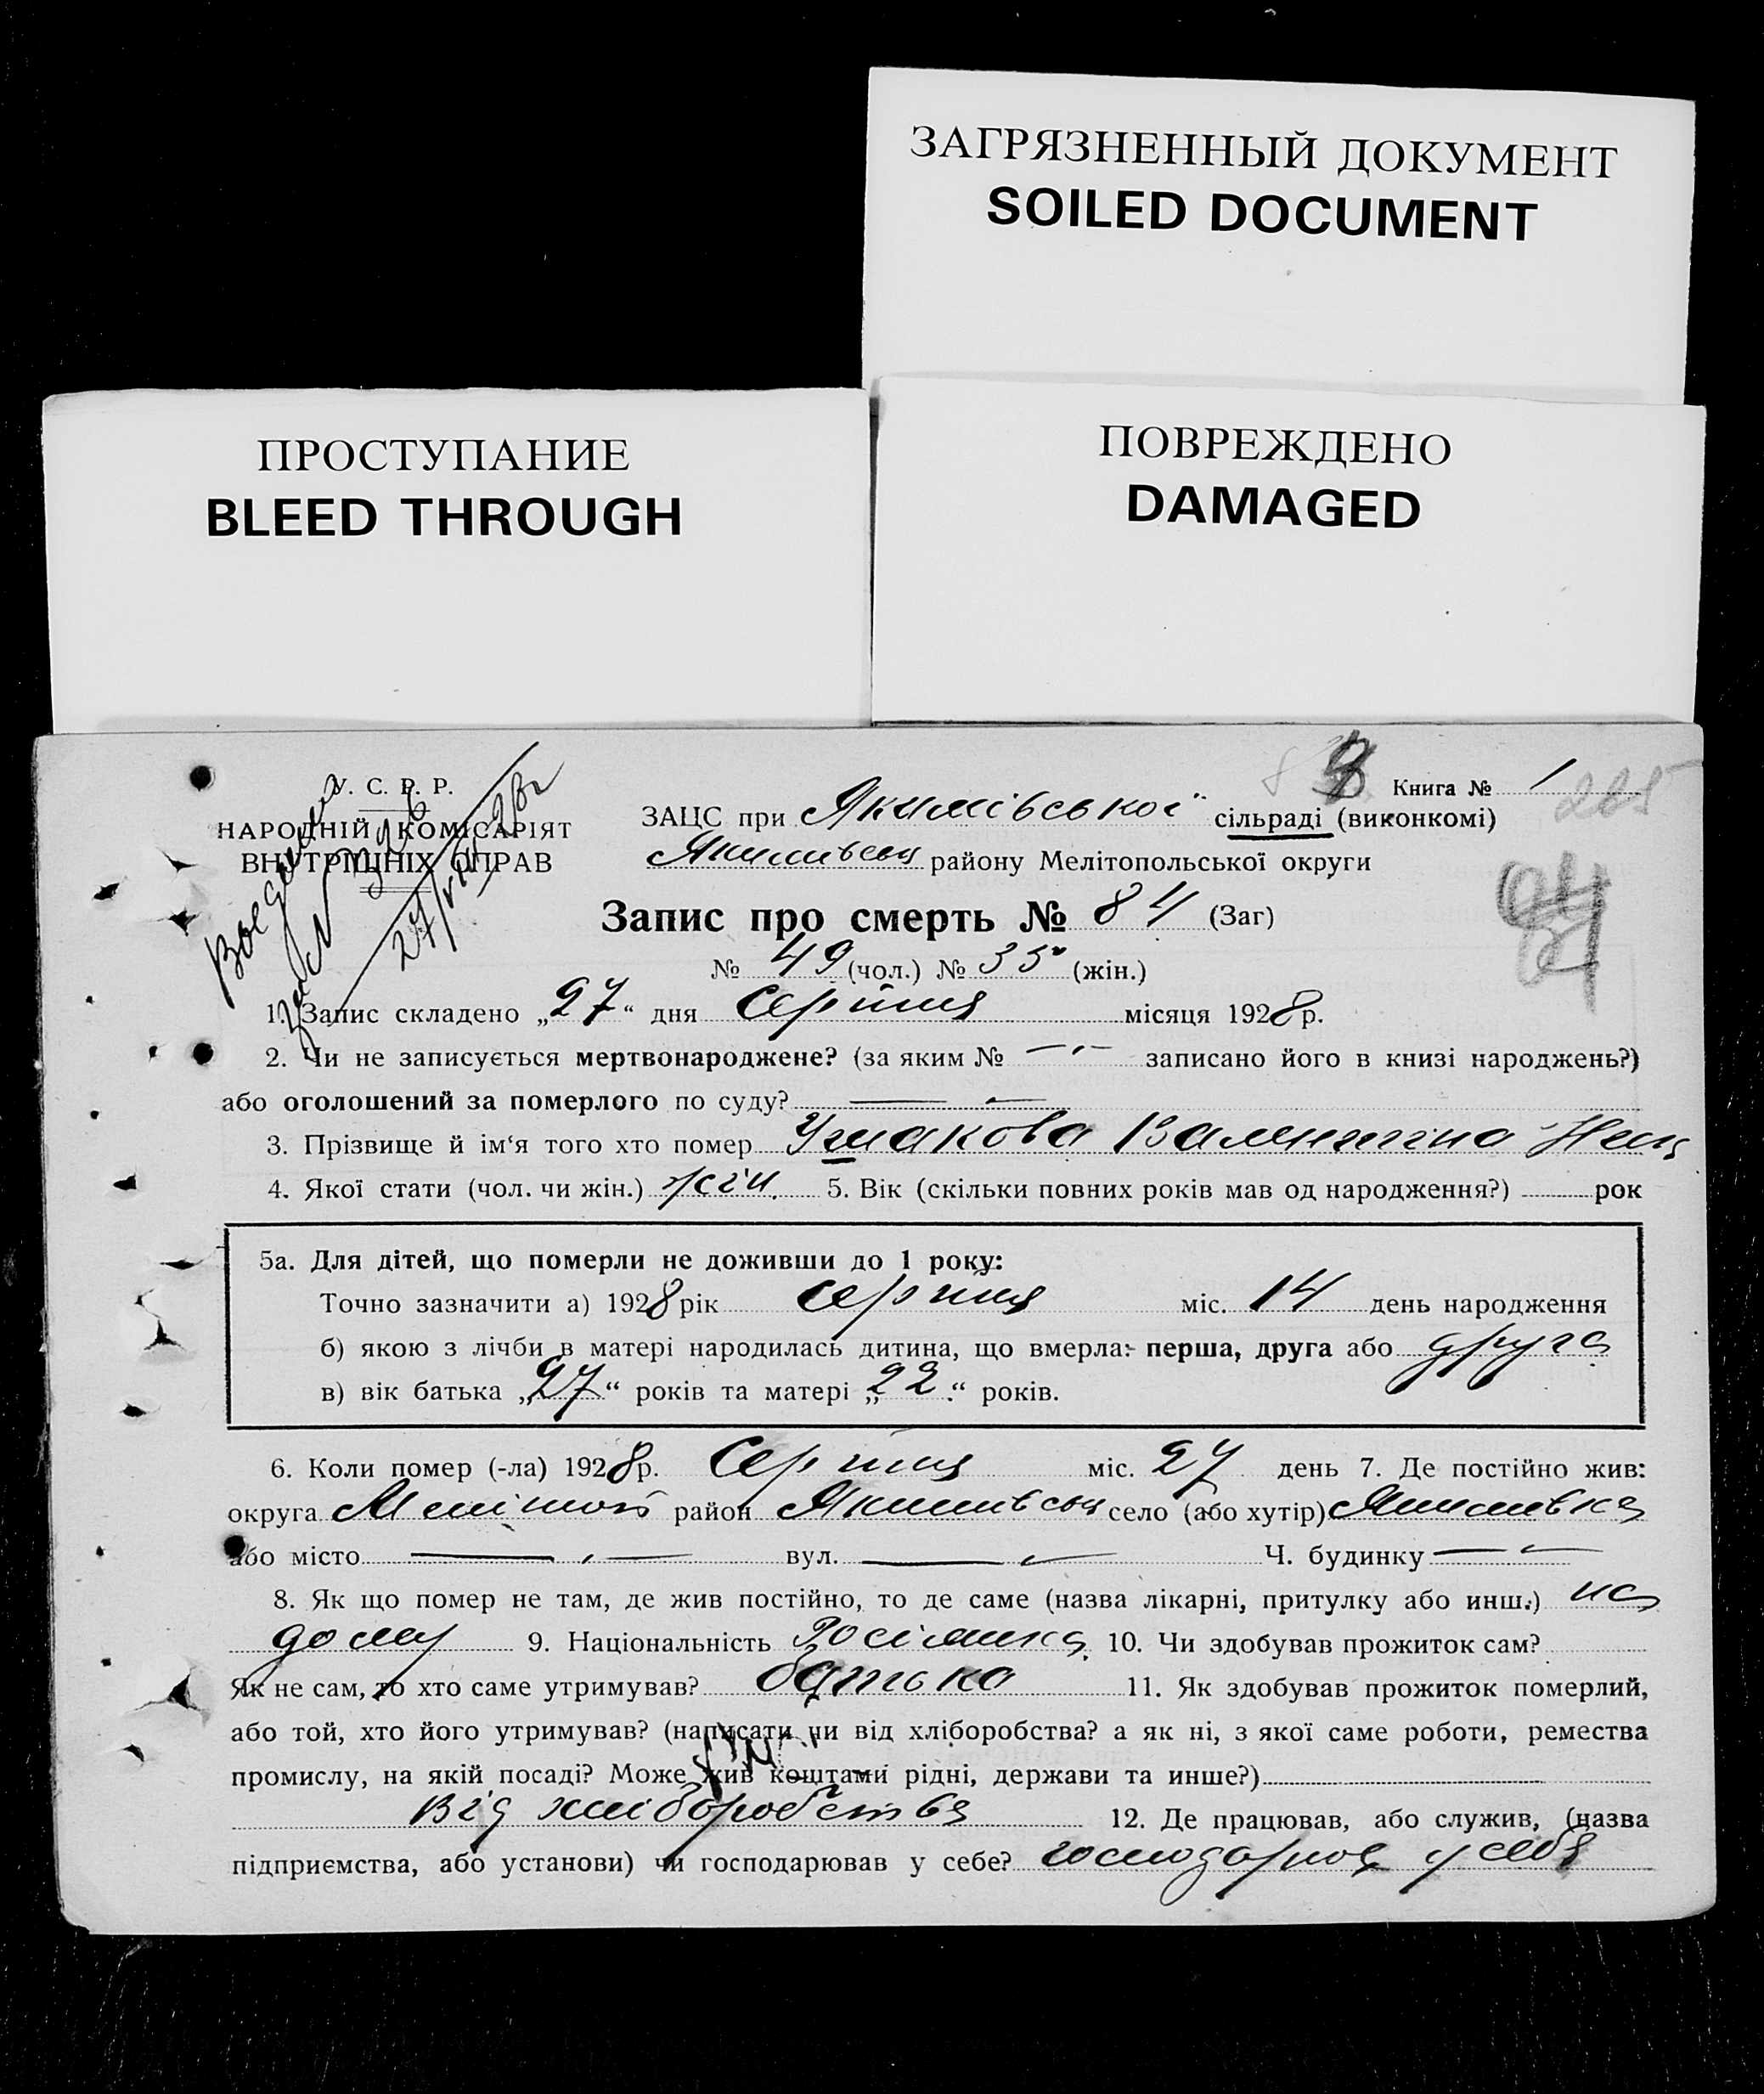 ЗАГРЯЗНЕННЫЙ ДОКУМЕНТ
SOILED DOCUMENT
ПРОСТУПАНИЕ
BLEED THROUGH
ПОВРЕЖДЕНО
DAMAGED
У. С. Р. Р.
НАРОДНІЙ КОМІСАРІЯТ
ВНУТРІШНІХ СПРАВ
Книга № 1
ЗАЦС при Якимівської сільраді (виконкомі)
Якимівськ району Мелітопольської округи
Запис про смерть № 84 (Заг)
№ 49 (чол.) № 35 (жін.)
1. Запис складено „27“ дня Серпня місяця 1928 р.
2. Чи не записується мертвонароджене? (за яким № записано його в книзі народжень?)
або оголошений за померлого по суду?
3. Прізвище й ім‘я того хто помер Ушакова Валентина
4. Якої стати (чол. чи жін.) жін. 5. Вік (скільки повних років мав од народження?) рок
5а. Для дітей, що померли не доживши до 1 року:
Точно зазначити а) 1928 рік серпня міс. 14 день народження
б) якою з лічби в матері народилась дитина, що вмерла: перша, друга або друга
в) вік батька „27“ років та матері „22“ років.
6. Коли помер (-ла) 1928 р. Серпня міс. 27 день 7. Де постійно жив:
округа Мелітоп район Якимівськ село (або хутір) Якимівка
або місто вул. Ч. будинку
8. Як що помер не там, де жив постійно, то де саме (назва лікарні, притулку або инш.) на
дому 9. Національність Росіянка 10. Чи здобував прожиток сам?
Як не сам, то хто саме утримував? батько 11. Як здобував прожиток померлий,
або той, хто його утримував? (написати чи від хліборобства? а як ні, з якої саме роботи, ремества
промислу, на якій посаді? Може жив коштами рідні, держави та инше?)
Від хліборобства 12. Де працював, або служив, (назва
підприємства, або установи) чи господарював у себе? господарює у себе